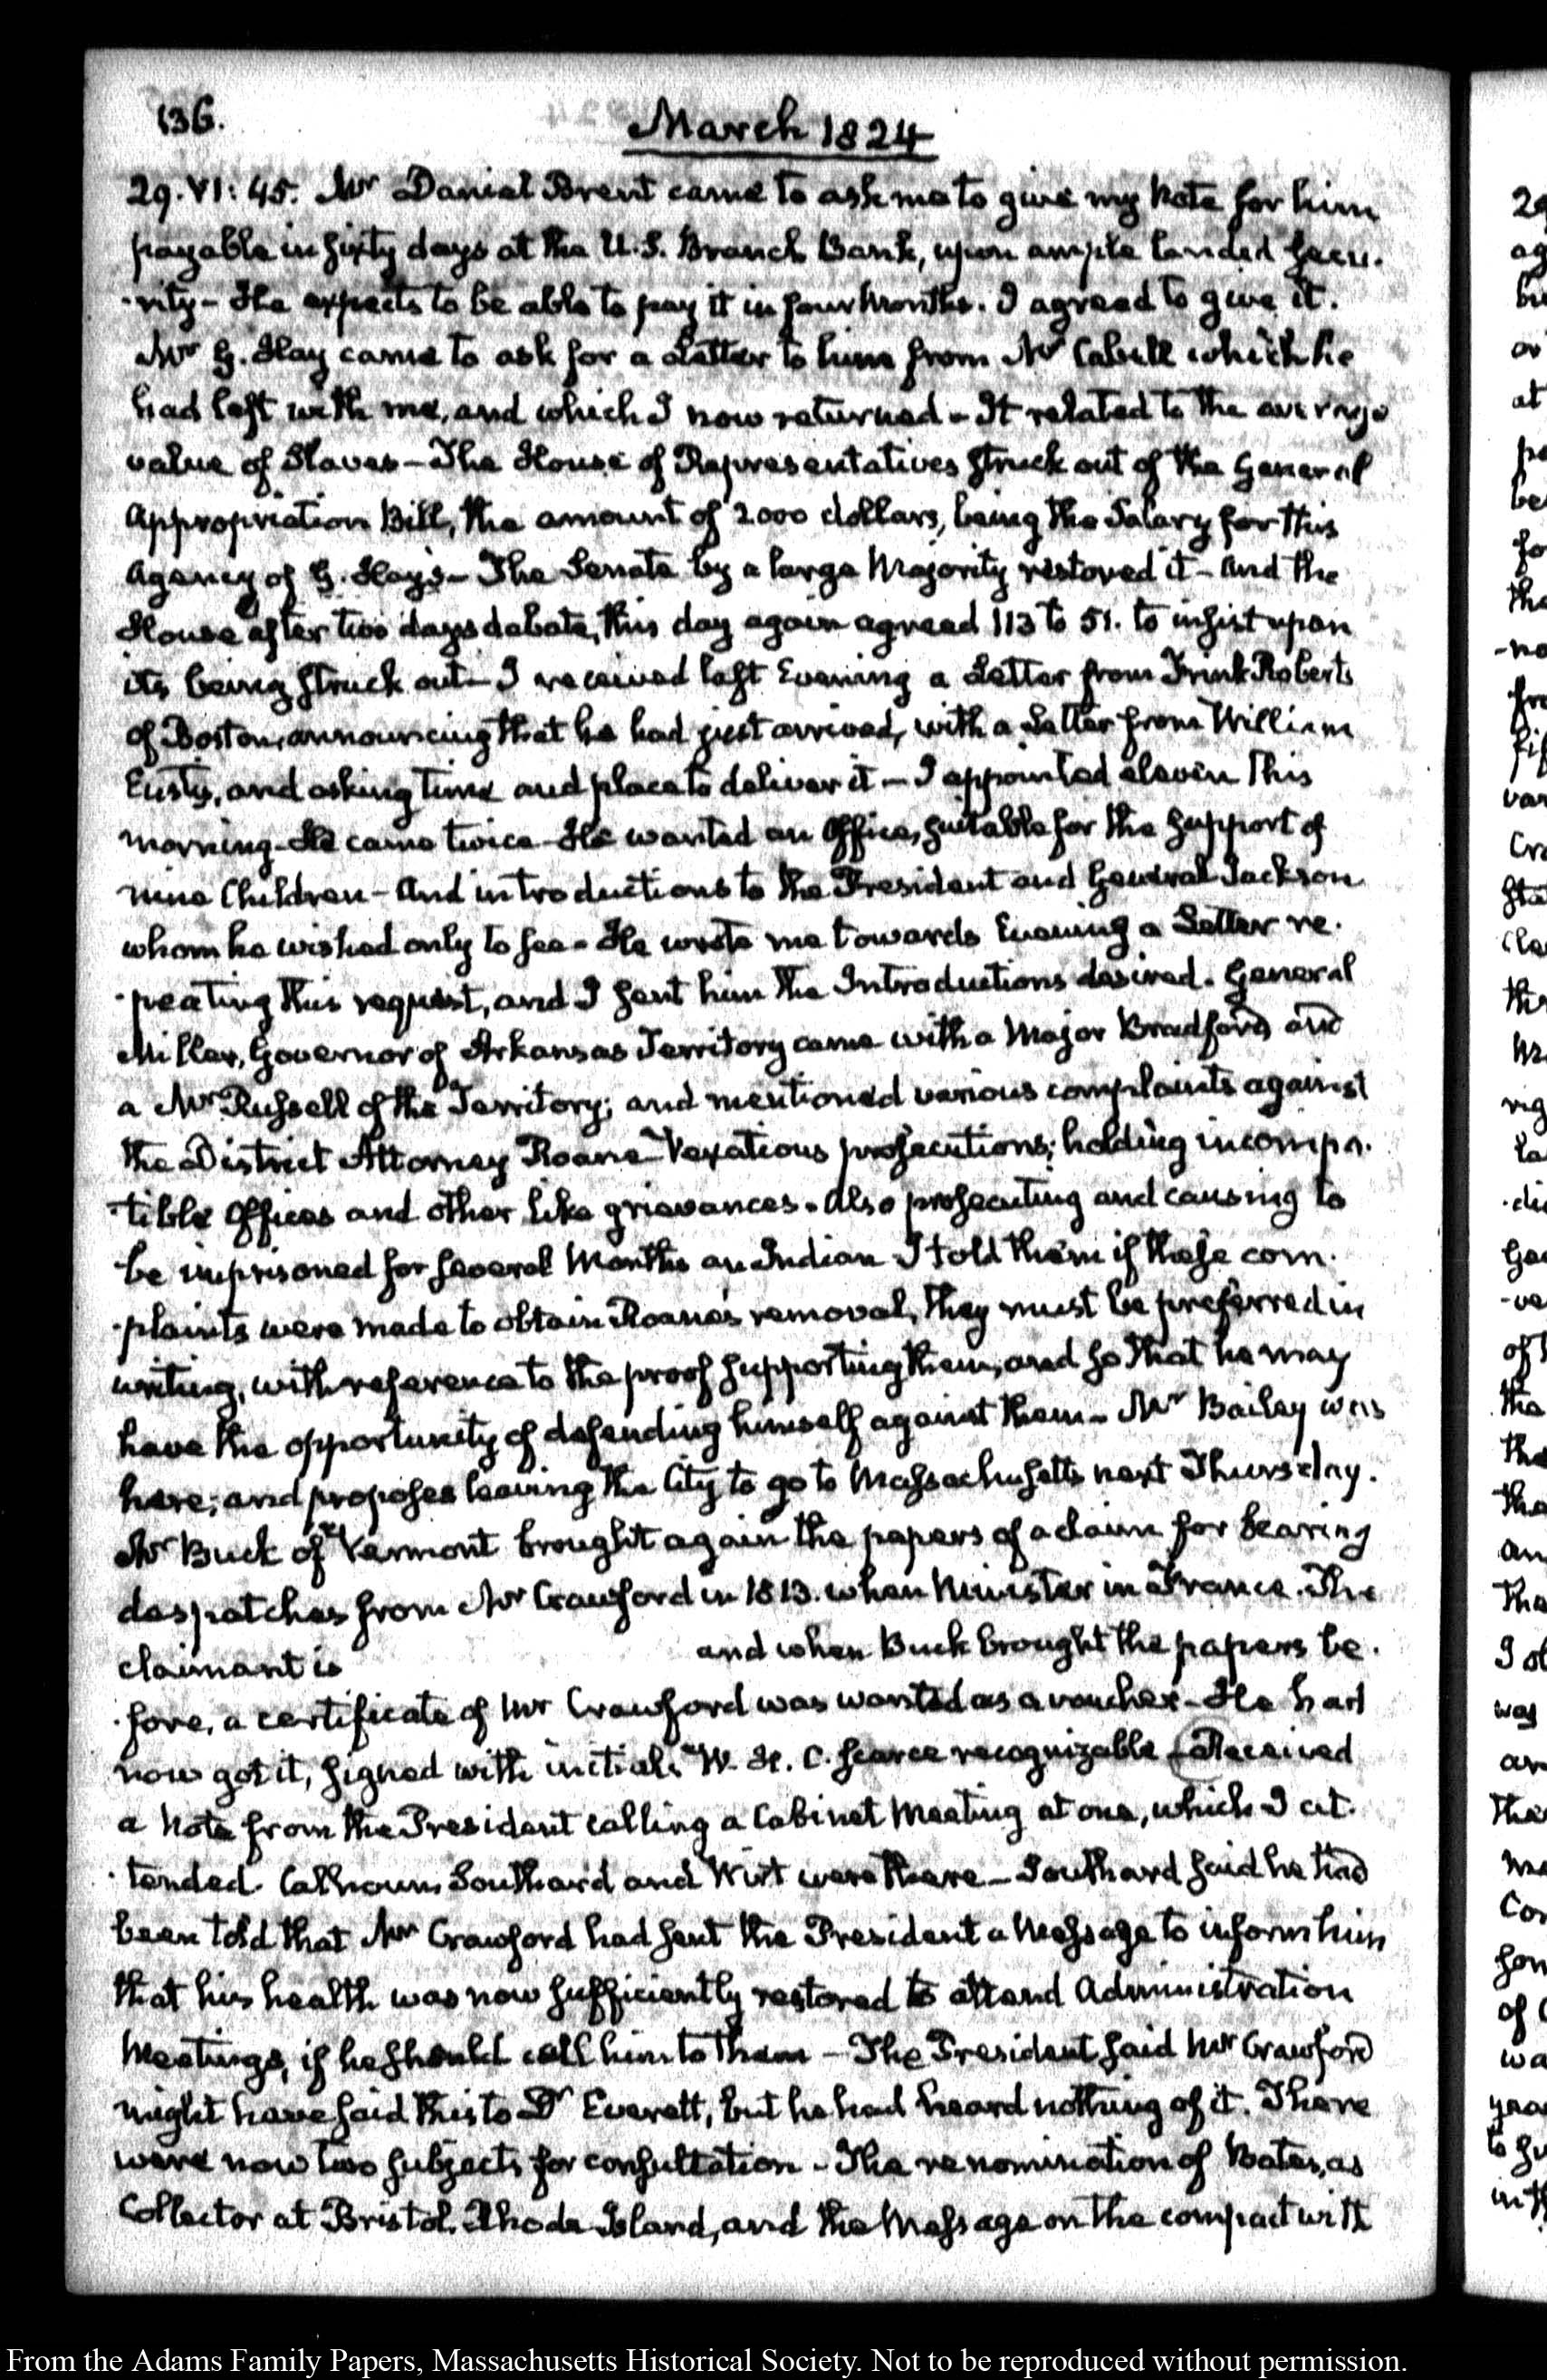 136.
March 1824
29. VI: 45. Mr Daniel Brent came to ask me to give my Note for him
payable in sixty days at the U.S. Branch Bank, upon ample landed secu-
-rity - He expects to be able to pay it in four Months. I agreed to give it.
Mr G. Hay came to ask for a Letter to him from Mr Cabell which he
had left with me, and which I now returned - It related to the average
value of Slaves - The House of Representatives struck out of the General
Appropriation Bill, the amount of 2000 dollars, being the Salary for this
Agency of G. Hay's - The Senate by a large Majority restored it - And the
House after two days debate, this day again agreed 113 to 51. to insist upon
its being struck out - I received last Evening a Letter from Roberts
of Boston, announcing that he had just arrived, with a Letter from William
Eustis, and asking time and place to deliver it - I appointed eleven this
morning - He came twice - He wanted an Office, suitable for the support of
nine Children - And introductions to the President and General Jackson
whom he wished only to see - He wrote me towards Evening a Letter re-
-peating this request, and I sent him the Introductions desired. General
Miller, Governor of Arkansas Territory came with a Major Bradford, and
a Mr Russell of the Territory; and mentioned various complaints against
the District Attorney Roane - Vexatious prosecutions; holding incompa-
-tible Offices and other like grievances. Also prosecuting and causing to
be imprisoned for several Months an Indian I told them if these com-
-plaints were made to obtain Roane's removal, they must be preferred in
writing, with reference to the proof supporting them, and so that he may
have the opportunity of defending himself against them - Mr Bailey was
here; and proposes leaving the City to go to Massachusetts next Thursday.
Mr Buck of Vermont brought again the papers of a claim for bearing
despatches from Mr Crawford in 1813. when Minister in France. The
claimant is and when Buck brought the papers be-
-fore, a certificate of Mr Crawford was wanted as a voucher - He had
now got it, signed with initials W. H. C. scarce recognizable - Received
a Note from the President calling a Cabinet Meeting at one, which I at-
-tended. Calhoun, Southard and Wirt were there - Southard said he had
been told that Mr Crawford had sent the President a Message to inform him
that his health was now sufficiently restored to attend Administration
Meetings, if he should call him to them - The President said Mr Crawford
might have said this to Dr Everett, but he had heard nothing of it. There
were now two subjects for consultation - The renomination of Bates, as
Collector at Bristol, Rhode Island, and the Message on the compact with
From the Adams Family Papers, Massachusetts Historical Society. Not to be reproduced without permission.